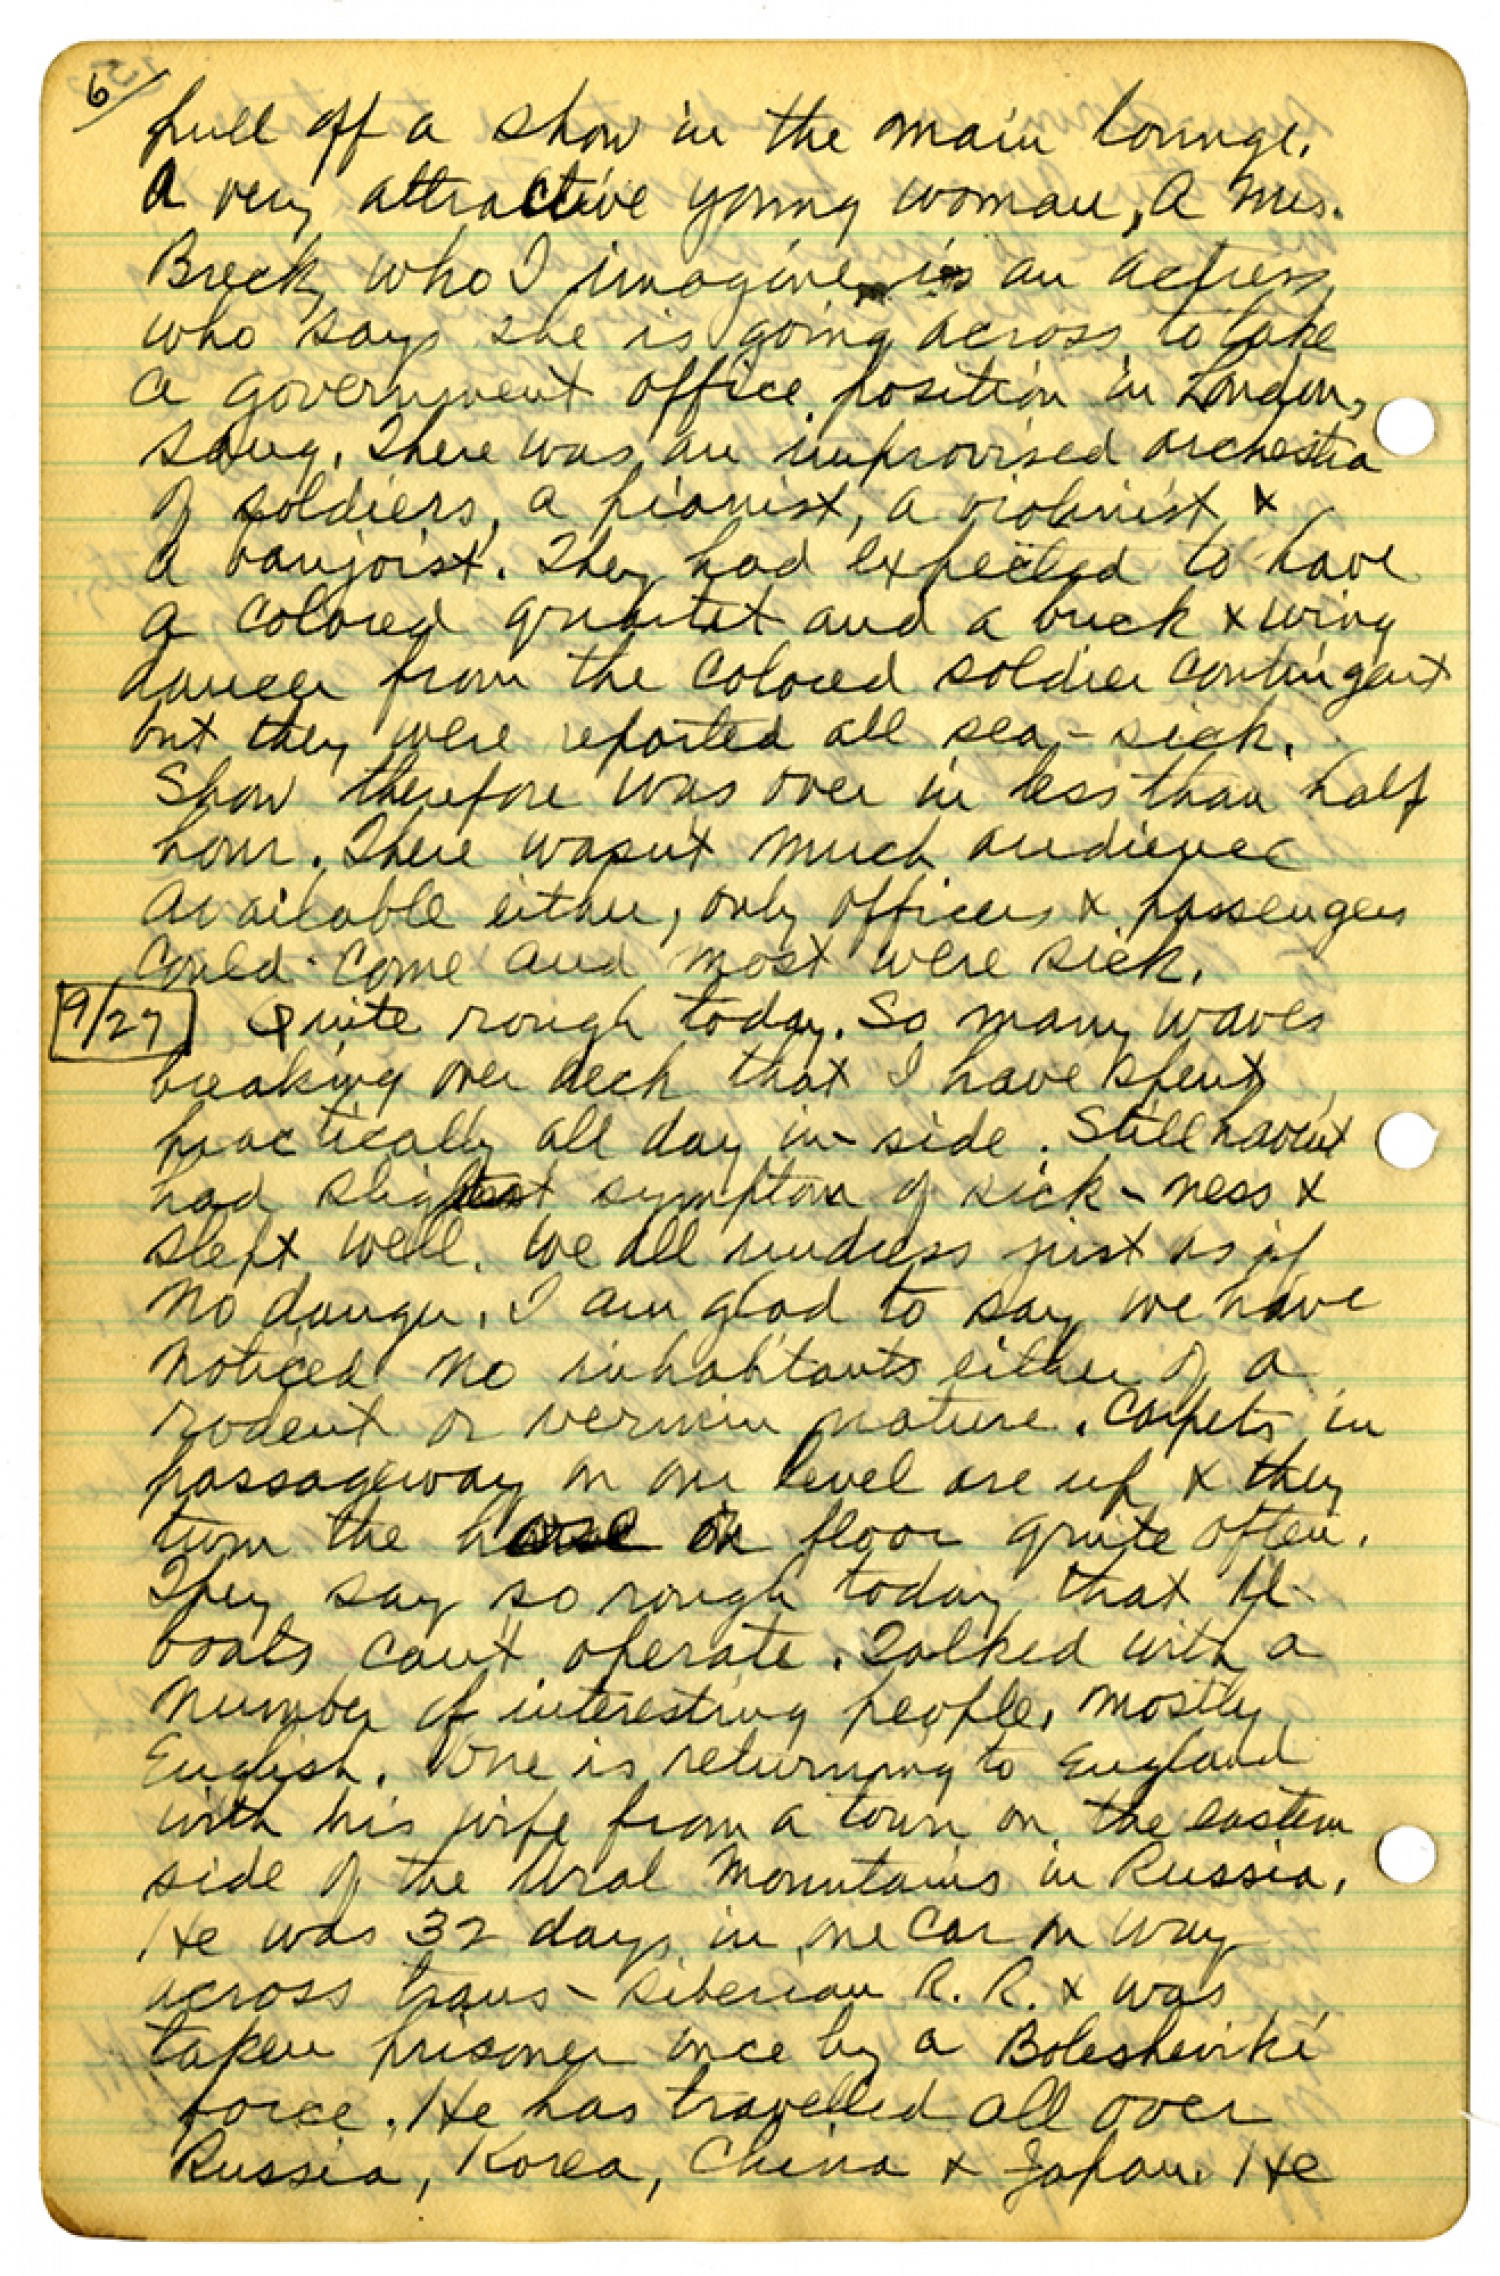 6/
pull off a show in the main lounge.
A very attractive young woman, a Mrs.
Breck, who I imagine is an actress
who says she is going across to take
a government office position in London,
sang. There was an improvised orchestra
of soldiers, a pianist, a violinist &
a banjoist. They had expected to have
a colored quartet and a buck & wing
dancer from the colored soldier contingent
but they were reported all sea-sick.
Show therefore was over in less than half
hour. There wasn't much audience
available either, only officers & passengers
could come and most were sick.
9/27 Quite rough today. So many waves
breaking over deck that I have spent
practically all day in-side. Still haven't
had slightest symptom of sick-ness &
slept well. We all undress just as if
no danger. I am glad to say we have
noticed no inhabitants either of a
rodent or vermin nature. Carpets in
passageway on our level are up & they
turn the hose on floor quite often.
They say so rough today that U-
boats can't operate. Talked with a
number of interesting people, mostly
English. One is returning to England
with his wife from a town on the eastern
side of the Ural Mountains in Russia.
He was 32 days in one car on way
across trans-Siberian R.R. & was
taken prisoner once by a Bolesheviki
force. He has travelled all over
Russia, Korea, China & Japan. He